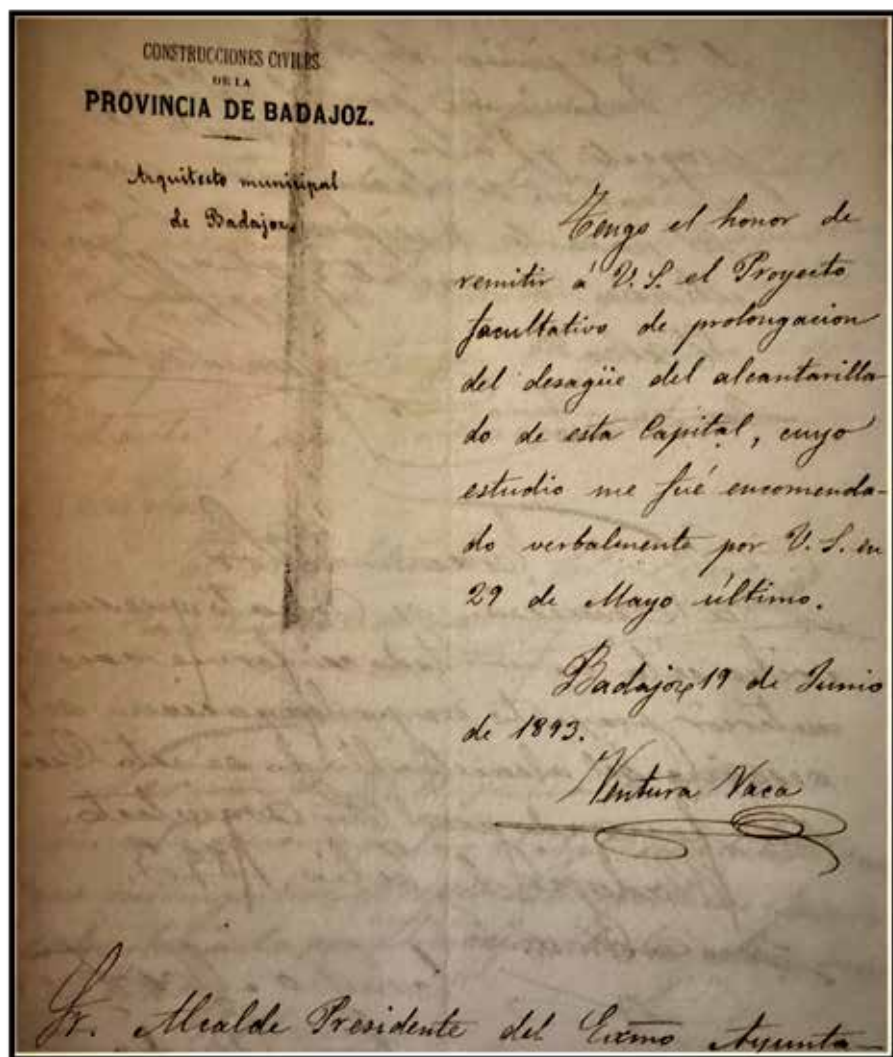 CONSTRUCCIONES CIVILES
DE LA
PROVINCIA DE BADAJOZ.
Arquitecto municipal
de Badajoz.
Tengo el honor de
remitir á V. S. el Proyecto
facultativo de prolongacion
del desagüe del alcantarilla-
do de esta Capital, cuyo
estudio me fué encomenda-
do verbalmente por V. S. en
29 de Mayo último.
Badajoz 19 de Junio
de 1893.
Ventura Vaca
Sr. Alcalde Presidente del Exmo Ayunta-